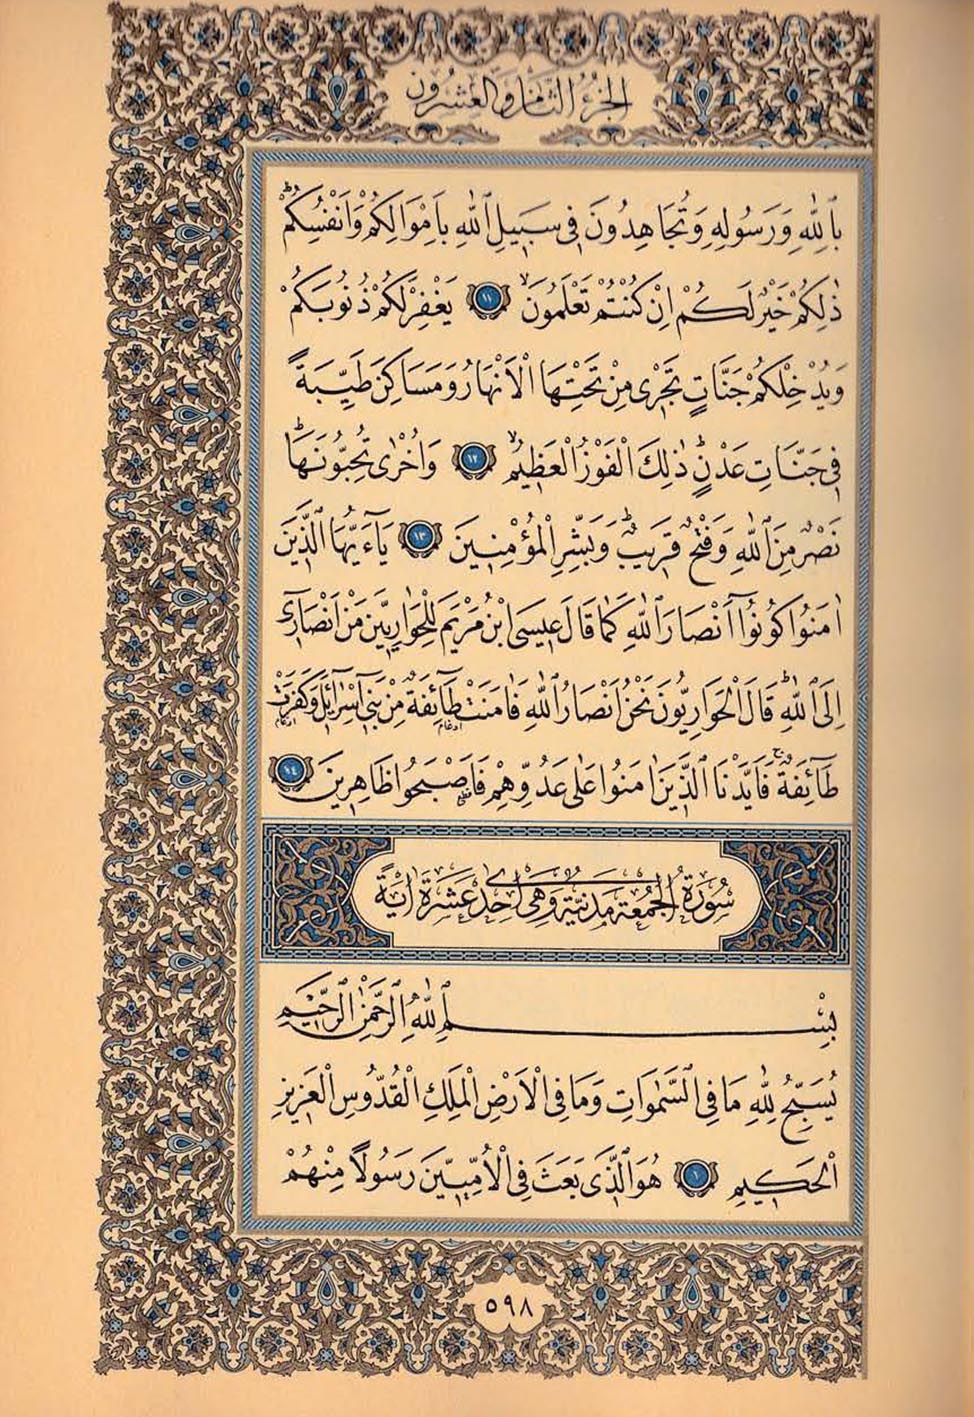 الجزء الثامن والعشرون
بِاللّٰهِ وَرَسُولِهِ وَتُجَاهِدُونَ فِي سَبِيلِ اللّٰهِ بِاَمْوَالِكُمْ وَاَنْفُسِكُمْۜ
ذٰلِكُمْ خَيْرٌ لَكُمْ اِنْ كُنْتُمْ تَعْلَمُونَۙ ١١ يَغْفِرْ لَكُمْ ذُنُوبَكُمْ
وَيُدْخِلْكُمْ جَنَّاتٍ تَجْرِى مِنْ تَحْتِهَا الْاَنْهَارُ وَمَسَاكِنَ طَيِّبَةً
فِى جَنَّاتِ عَدْنٍۜ ذٰلِكَ الْفَوْزُ الْعَظِيمُۙ ١٢ وَاُخْرٰى تُحِبُّونَهَاۜ
نَصْرٌ مِنَ اللّٰهِ وَفَتْحٌ قَرِيبٌۜ وَبَشِّرِ الْمُؤْمِنِينَ ١٣ يَٓا اَيُّهَا الَّذِينَ
اٰمَنُوا كُونُٓوا اَنْصَارَ اللّٰهِ كَمَا قَالَ عِيسَى ابْنُ مَرْيَمَ لِلْحَوَارِيِّينَ مَنْ اَنْصَارِٓى
اِلَى اللّٰهِۜ قَالَ الْحَوَارِيُّونَ نَحْنُ اَنْصَارُ اللّٰهِ فَاٰمَنَتْ طَٓائِفَةٌ مِنْ بَنِٓى اِسْرَٓائِلَ وَكَفَرَتْ
ادغام ادغام
طَٓائِفَةٌۚ فَاَيَّدْنَا الَّذِينَ اٰمَنُوا عَلٰى عَدُوِّهِمْ فَاَصْبَحُوا ظَاهِرِينَ ١٤
سُورَةُ الْجُمُعَةِ مَدَنِيَّةٌ وَهِىَ اِحْدٰى عَشَرَةَ اٰيَةً
بِسْمِ اللّٰهِ الرَّحْمٰنِ الرَّحِيمِ
يُسَبِّحُ لِلّٰهِ مَا فِى السَّمٰوَاتِ وَمَا فِى الْاَرْضِ الْمَلِكِ الْقُدُّوسِ الْعَزِيزِ
الْحَكِيمِ ١ هُوَ الَّذِى بَعَثَ فِى الْاُمِّيِّينَ رَسُولًا مِنْهُمْ
٥٩٨